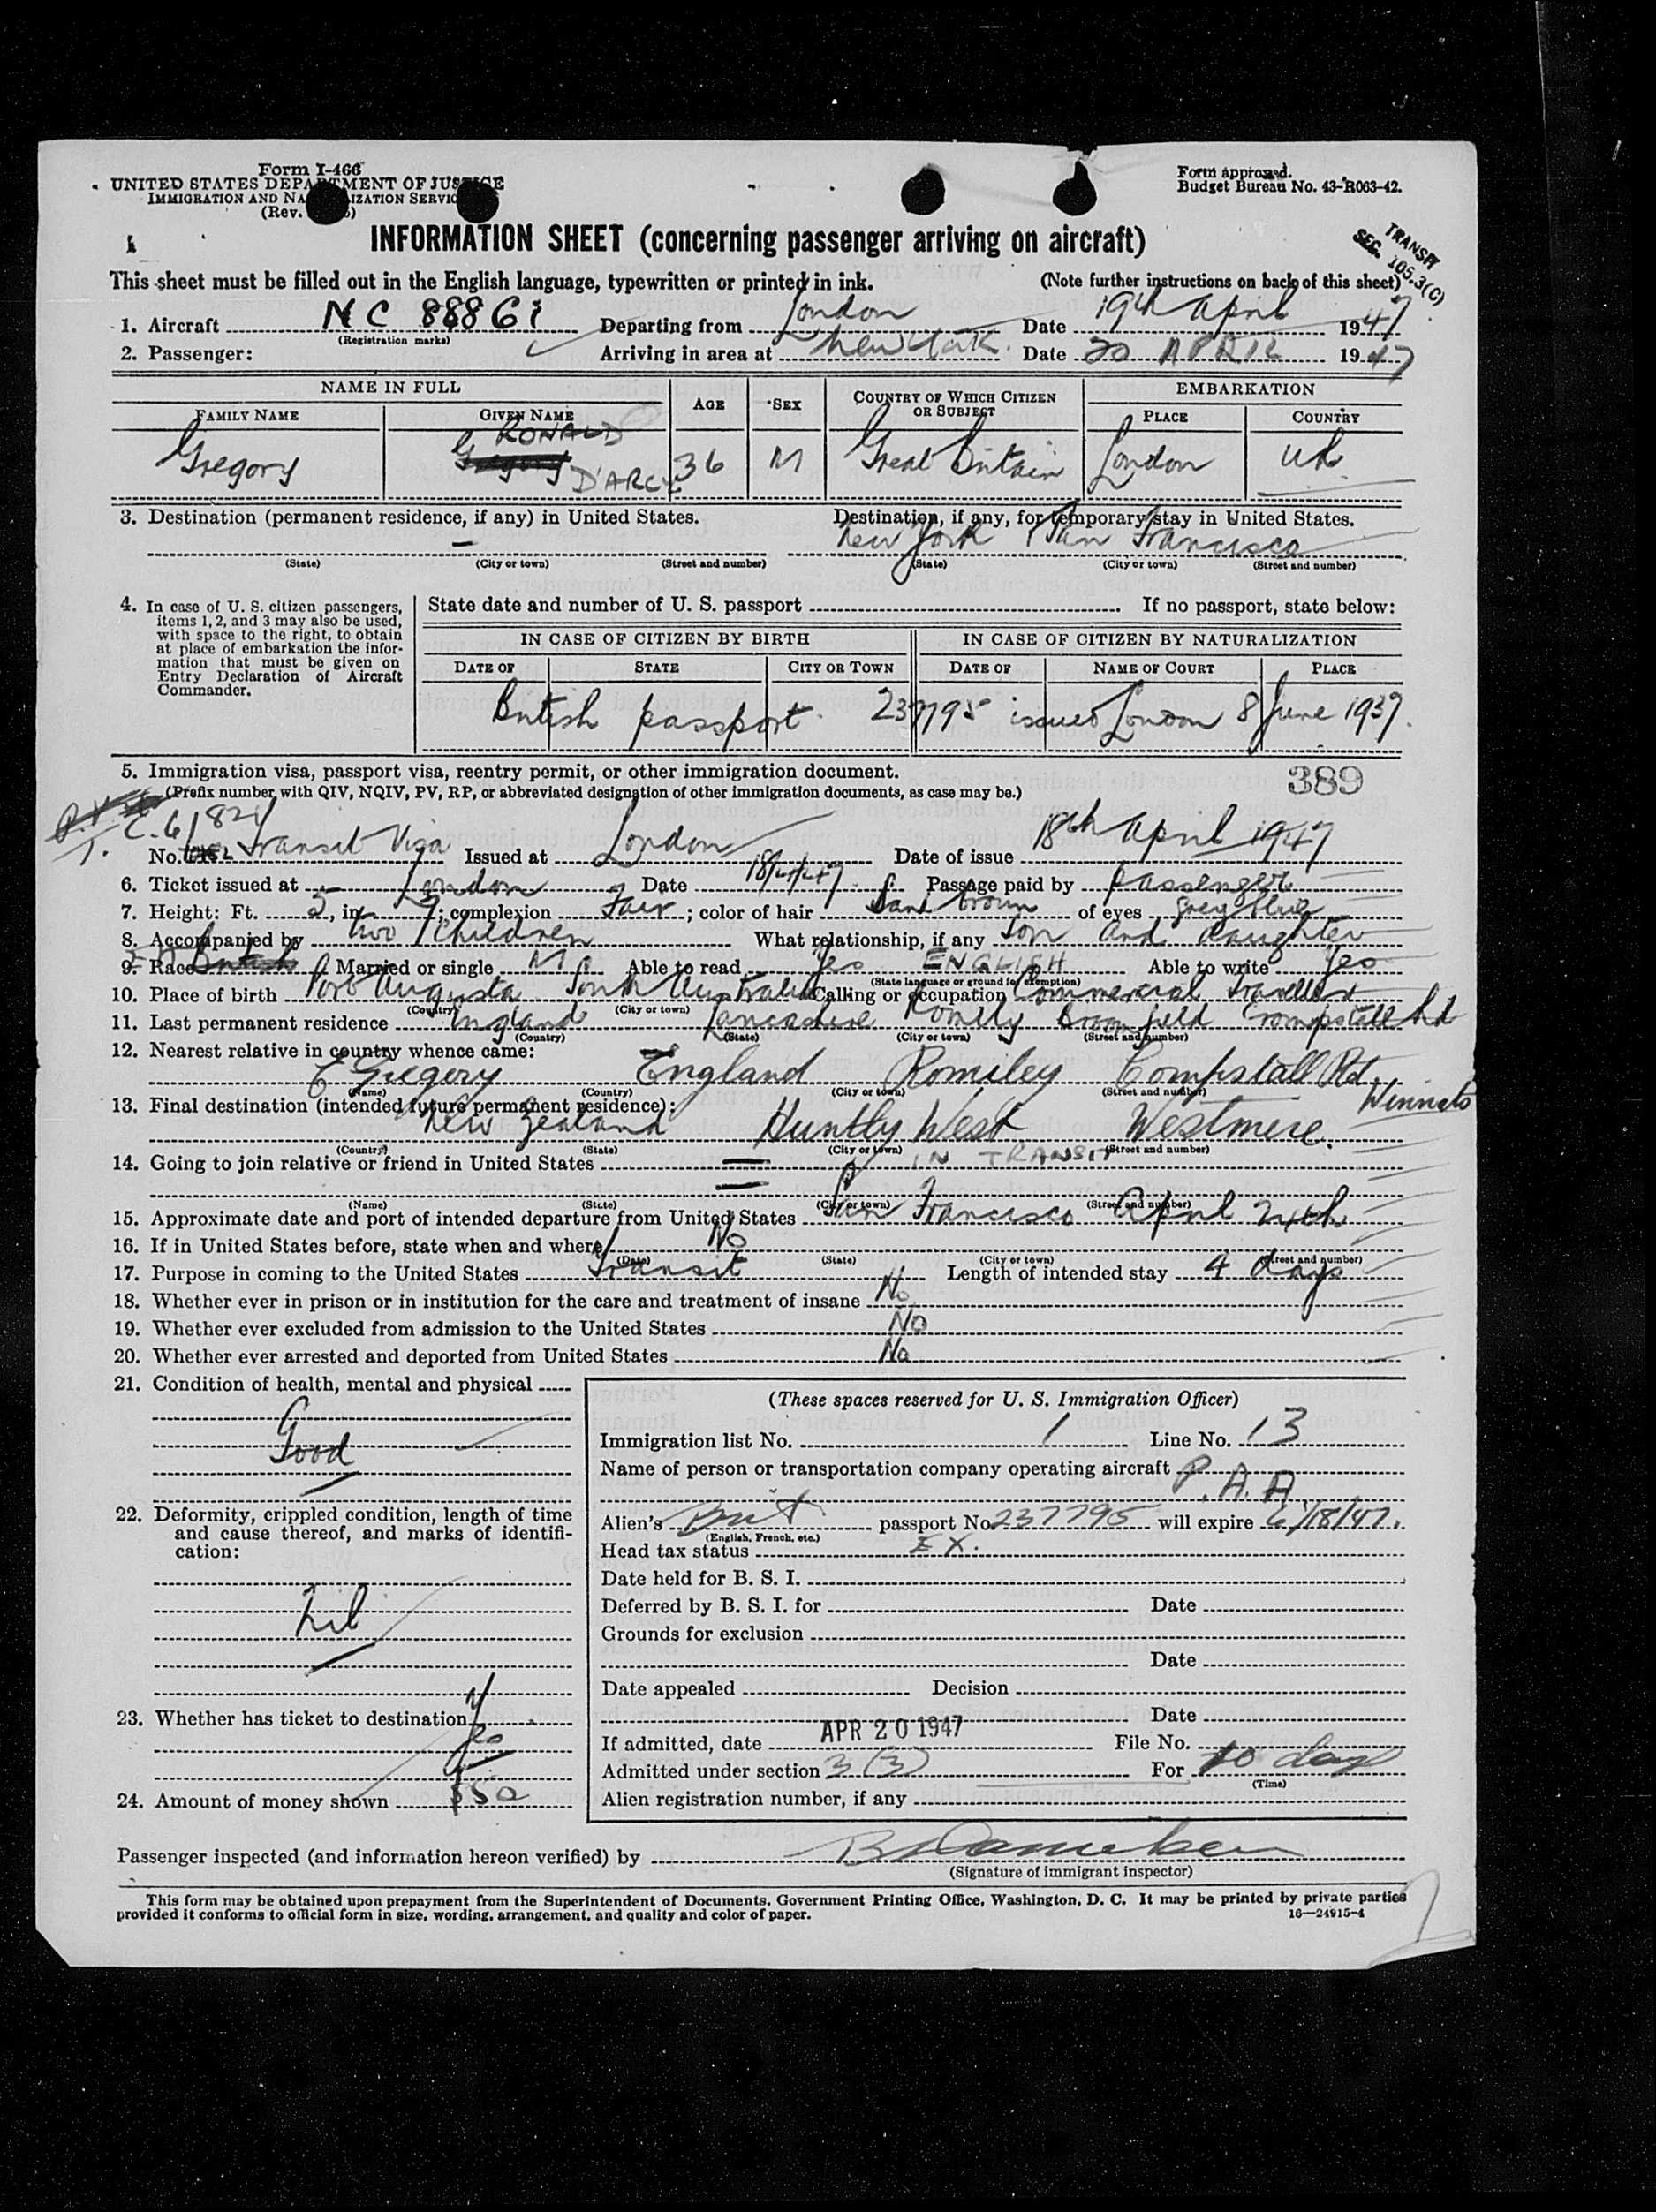 Form I-466
UNITED STATES DEPARTMENT OF JUSTICE
IMMIGRATION AND NATURALIZATION SERVICE
(Rev.
Form approved.
Budget Bureau No. 43-R063-42.
INFORMATION SHEET (concerning passenger arriving on aircraft)
TRANSIT
SEC. 105.3(C)
This sheet must be filled out in the English language, typewritten or printed in ink. (Note further instructions on back of this sheet)
1. Aircraft NC 88861 Departing from London Date 19th April 1947
(Registration marks)
2. Passenger: Arriving in area at New York. Date 20 APRIL 1947
NAME IN FULL AGE SEX COUNTRY OF WHICH CITIZEN OR SUBJECT EMBARKATION
FAMILY NAME GIVEN NAME PLACE COUNTRY
RONALD
Gregory Gregory D'ARCY 36 M Great Britain London UK
3. Destination (permanent residence, if any) in United States. Destination, if any, for temporary stay in United States.
— New York San Francisco
(State) (City or town) (Street and number) (State) (City or town) (Street and number)
4. In case of U. S. citizen passengers, items 1, 2, and 3 may also be used, with space to the right, to obtain at place of embarkation the information that must be given on Entry Declaration of Aircraft Commander.
State date and number of U. S. passport If no passport, state below:
IN CASE OF CITIZEN BY BIRTH IN CASE OF CITIZEN BY NATURALIZATION
DATE OF STATE CITY OR TOWN DATE OF NAME OF COURT PLACE
British passport 237795 issued London 8 June 1937.
5. Immigration visa, passport visa, reentry permit, or other immigration document.
389
(Prefix number with QIV, NQIV, PV, RP, or abbreviated designation of other immigration documents, as case may be.)
No. Transit Visa Issued at London Date of issue 18th April 1947
6. Ticket issued at London Date 18/4/47. Passage paid by passenger
7. Height: Ft. 5, in. 7; complexion Fair; color of hair brown of eyes grey blue
8. Accompanied by two children What relationship, if any Son and daughter
9. Race British Married or single M Able to read Yes ENGLISH Able to write Yes
(State language or ground for exemption)
10. Place of birth Port Augusta South Australia Calling or occupation Commercial Traveller
(Country) (City or town)
11. Last permanent residence England Lancashire Romily Broomfield Compstall Rd
(Country) (State) (City or town) (Street and number)
12. Nearest relative in country whence came:
E Gregory England Romiley Compstall Rd.
Winnats
(Name) (Country) (City or town) (Street and number)
13. Final destination (intended future permanent residence):
New Zealand Huntly West Westmere.
(Country) (State) (City or town) (Street and number)
14. Going to join relative or friend in United States — IN TRANSIT
—
(Name) (State) (City or town) (Street and number)
15. Approximate date and port of intended departure from United States San Francisco April 24th
16. If in United States before, state when and where No
(Date) (State) (City or town) (Street and number)
17. Purpose in coming to the United States Transit Length of intended stay 4 days
18. Whether ever in prison or in institution for the care and treatment of insane No
19. Whether ever excluded from admission to the United States No
20. Whether ever arrested and deported from United States No
21. Condition of health, mental and physical
Good
22. Deformity, crippled condition, length of time and cause thereof, and marks of identification:
Nil
23. Whether has ticket to destination Yes
24. Amount of money shown $50
(These spaces reserved for U. S. Immigration Officer)
Immigration list No. 1 Line No. 13
Name of person or transportation company operating aircraft P.A.A.
Alien's Brit passport No. 237795 will expire 6/18/47.
(English, French, etc.)
Head tax status EX.
Date held for B. S. I.
Deferred by B. S. I. for Date
Grounds for exclusion
Date
Date appealed Decision
Date
If admitted, date APR 20 1947 File No.
Admitted under section 3(3) For 10 days
(Time)
Alien registration number, if any
Passenger inspected (and information hereon verified) by
(Signature of immigrant inspector)
This form may be obtained upon prepayment from the Superintendent of Documents, Government Printing Office, Washington, D. C. It may be printed by private parties
provided it conforms to official form in size, wording, arrangement, and quality and color of paper. 16—24915-4